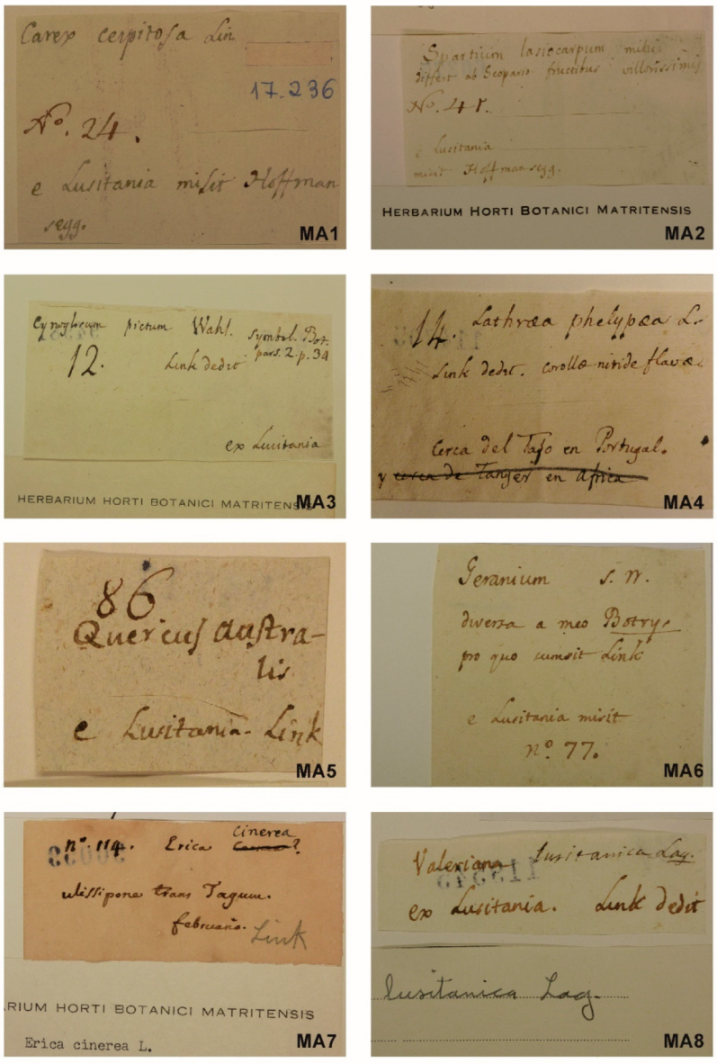 Carex cespitosa Lin
17.236
Nº. 24.
e Lusitania misit Hoffman
segg.
MA1
Spartium lasiocarpum mihi
differt ab Scopario fructibus villosissimis
Nº. 41.
e Lusitania
misit Hoffmansegg.
HERBARIUM HORTI BOTANICI MATRITENSIS
MA2
Cynoglossum pictum Wahl. Symbol. Bot.
pars. 2. p. 34
12.
Link dedit
ex Lusitania
HERBARIUM HORTI BOTANICI MATRITENSIS
MA3
14. Lathræa phelypæa L.
Link dedit. corollæ nitide flavæ.
Cerca del Tajo en Portugal.
y cerca de Tanger en Africa
MA4
86
Quercus austra-
lis
e Lusitania. Link
MA5
Geranium s. n.
diversa a meo Botrys
pro quo sumsit Link
e Lusitania misit
nº. 77.
MA6
nº. 114. Erica cinerea ?
ulissipone trans Tagum.
februario. Link
RIUM HORTI BOTANICI MATRITENSIS
Erica cinerea L.
MA7
Valeriana lusitanica Lag.
ex Lusitania. Link dedit
lusitanica Lag.
MA8